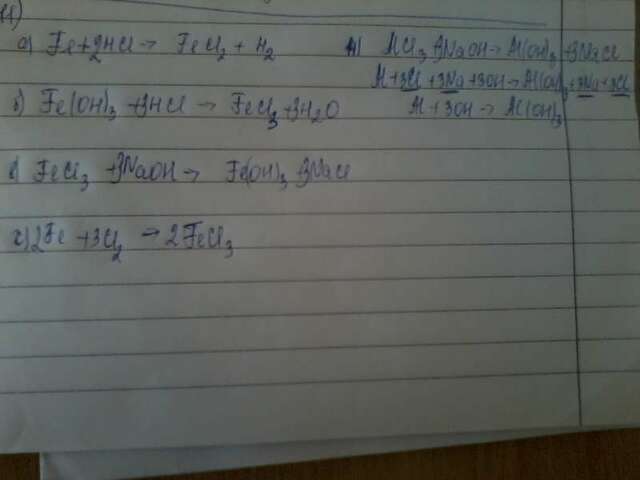 а) Fe+2HCl → FeCl₂ + H₂
б) Fe(OH)₃ +3HCl → FeCl₃+3H₂O
в) FeCl₃ +3NaOH → Fe(OH)₃ 3NaCl
г) 2Fe +3Cl₂ → 2FeCl₃
AlCl₃ 3NaOH → Al(OH)₃ +3NaCl
Al+3Cl+3Na+3OH → Al(OH)₃+3Na+3Cl
Al+3OH → Al(OH)₃